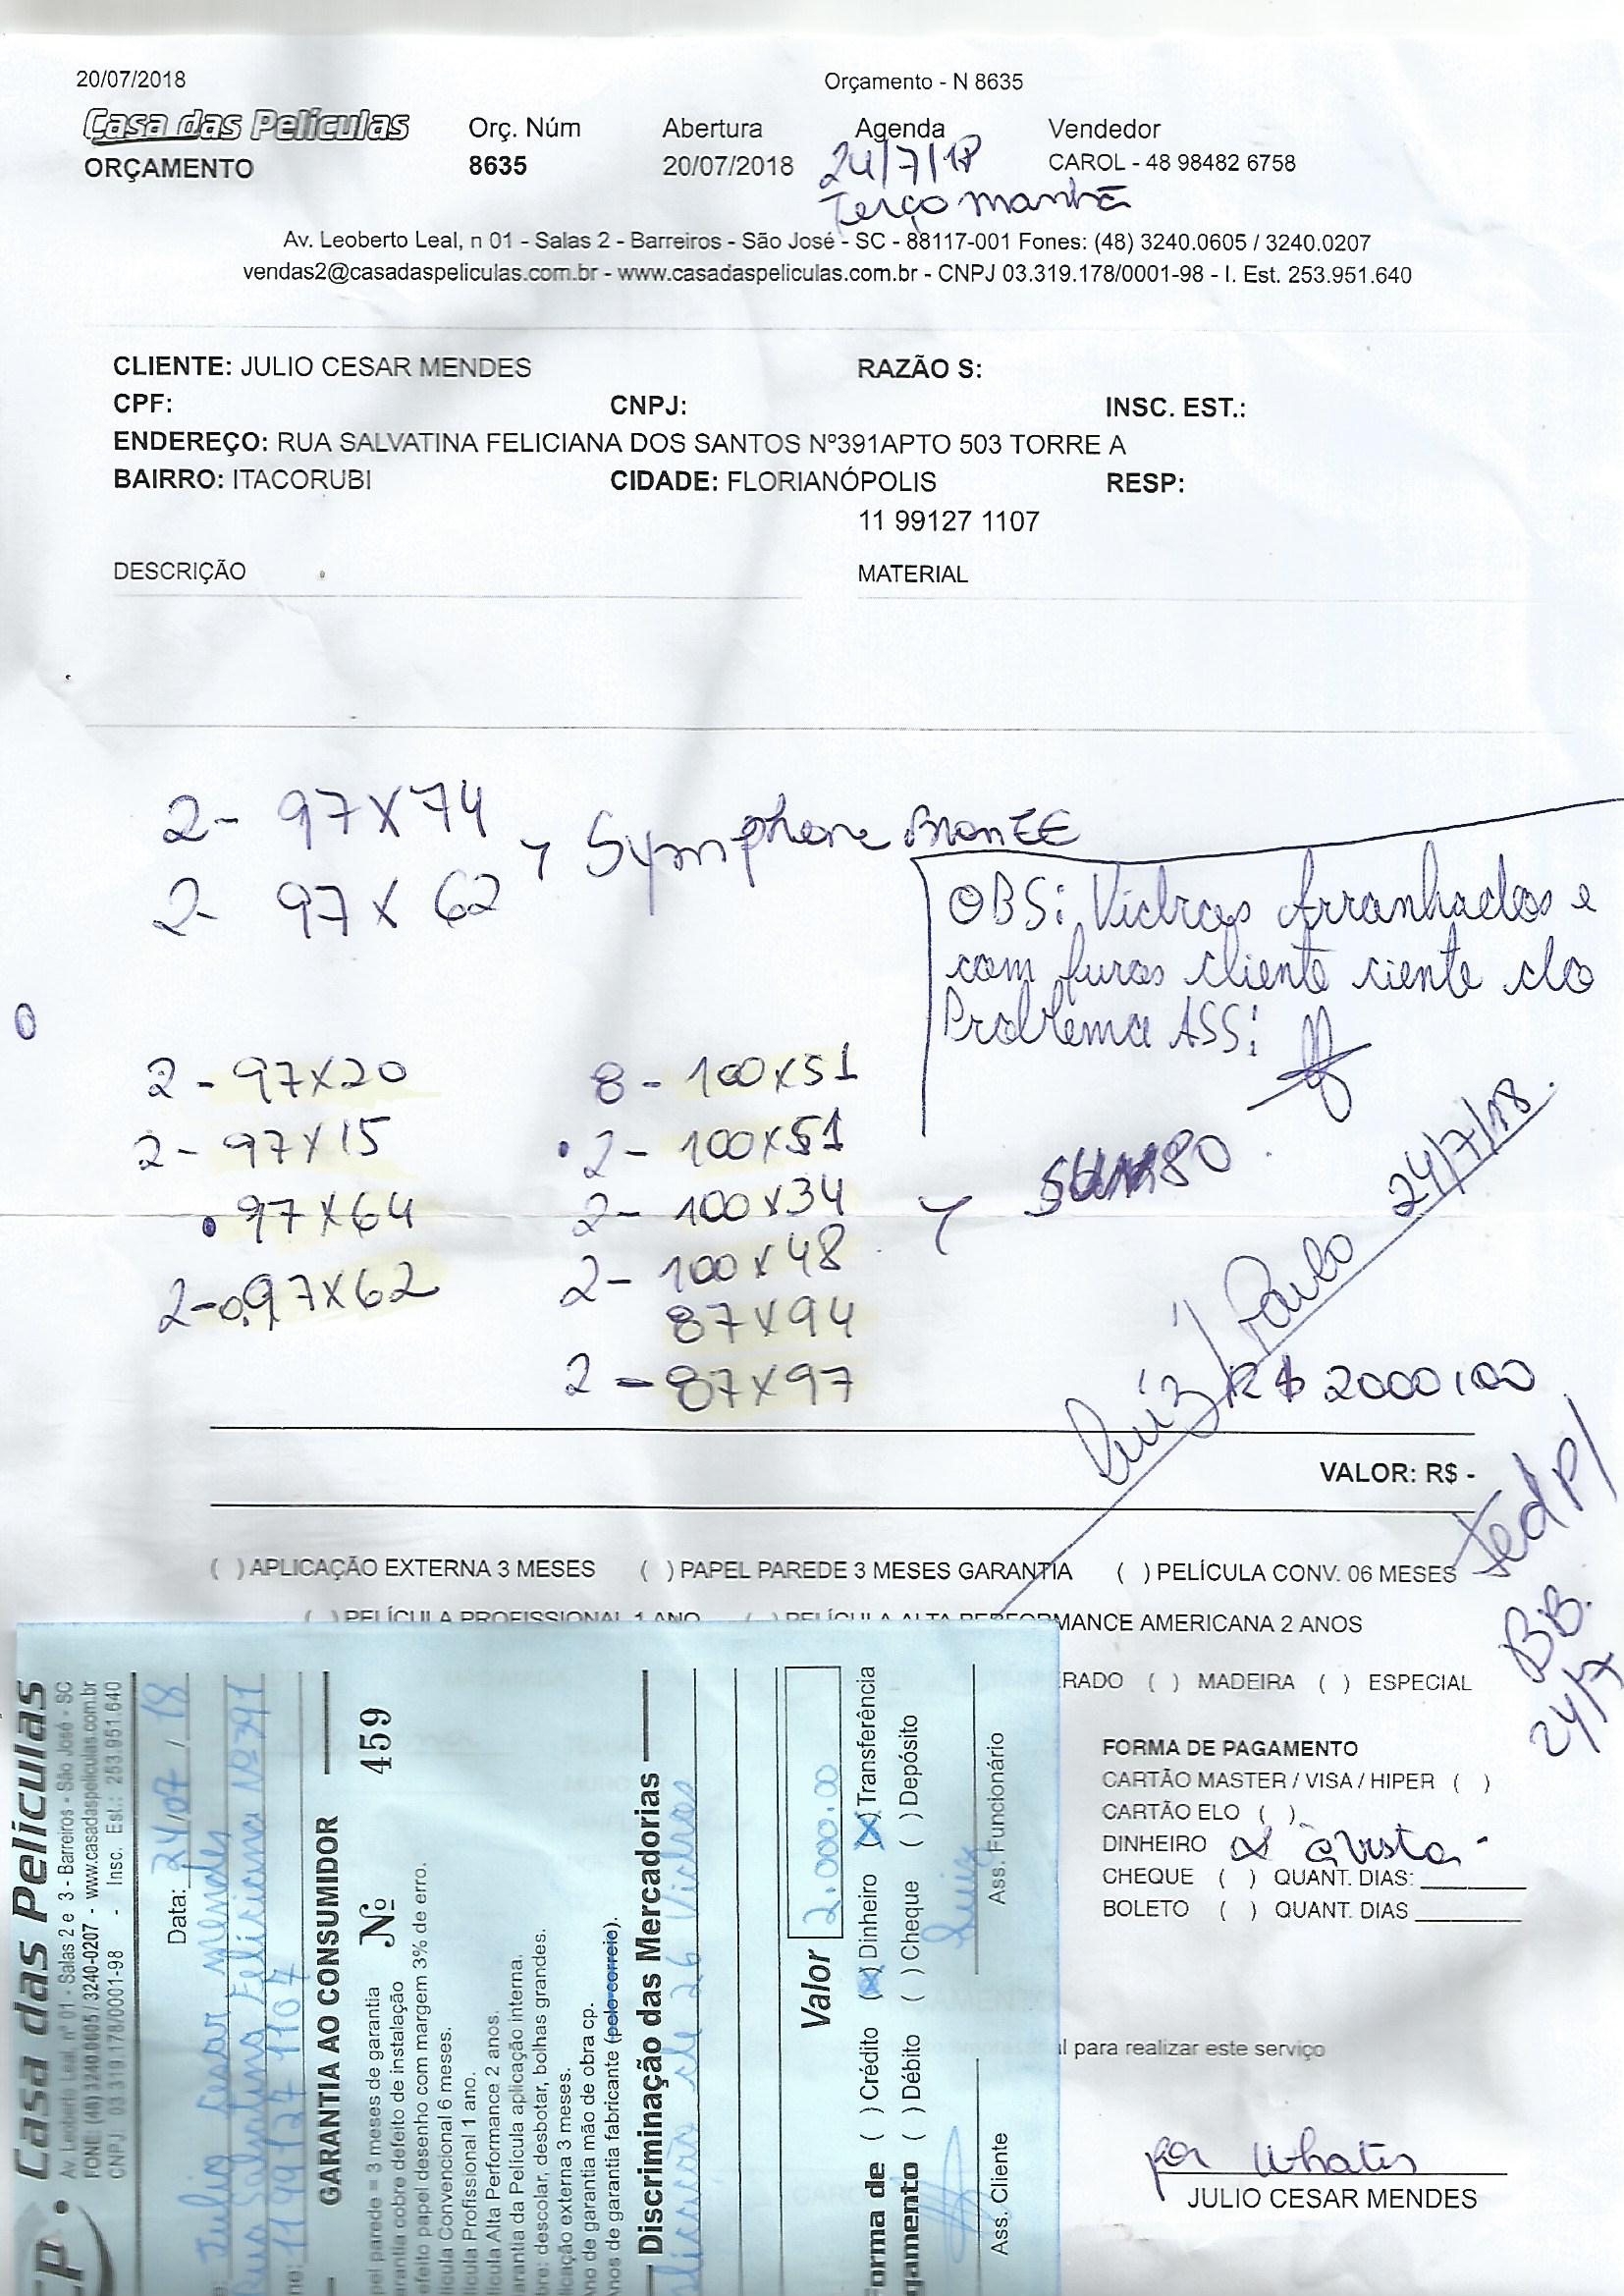 20/07/2018 Orçamento - N 8635
Casa das Películas Orç. Núm Abertura Agenda Vendedor
ORÇAMENTO 8635 20/07/2018 24/7/18 CAROL - 48 98482 6758
Terça manhã
Av. Leoberto Leal, n 01 - Salas 2 - Barreiros - São José - SC - 88117-001 Fones: (48) 3240.0605 / 3240.0207
vendas2@casadaspeliculas.com.br - www.casadaspeliculas.com.br - CNPJ 03.319.178/0001-98 - I. Est. 253.951.640
CLIENTE: JULIO CESAR MENDES RAZÃO S:
CPF: CNPJ: INSC. EST.:
ENDEREÇO: RUA SALVATINA FELICIANA DOS SANTOS Nº391APTO 503 TORRE A
BAIRRO: ITACORUBI CIDADE: FLORIANÓPOLIS RESP:
11 99127 1107
DESCRIÇÃO MATERIAL
2- 97x74
2- 97x62
BronZE
OBS: Vidros Arranhados e
com furos cliente ciente do
Problema ASS:
2- 97x20 8- 100x51
2- 97x15 2- 100x51
97x64 2- 100x34
2- 97x62 2- 100x48
87x94
2- 87x97
Luiz / Paulo 24/7/18
R$ 2000,00
VALOR: R$ -
Ted P/
BB.
24/7
( ) APLICAÇÃO EXTERNA 3 MESES ( ) PAPEL PAREDE 3 MESES GARANTIA ( ) PELÍCULA CONV. 06 MESES
( ) PELÍCULA PROFISSIONAL 1 ANO ( ) PELÍCULA ALTA PERFORMANCE AMERICANA 2 ANOS
RADO ( ) MADEIRA ( ) ESPECIAL
FORMA DE PAGAMENTO
CARTÃO MASTER / VISA / HIPER ( )
CARTÃO ELO ( )
DINHEIRO à vista
CHEQUE ( ) QUANT. DIAS:
BOLETO ( ) QUANT. DIAS
l para realizar este serviço
por Whats
JULIO CESAR MENDES
cp. Casa das Películas
Av. Leoberto Leal, nº 01 - Salas 2 e 3 - Barreiros - São José - SC
FONE: (48) 3240.0605 / 3240-0207 - www.casadaspeliculas.com.br
CNPJ 03.319.178/0001-98 - Insc. Est.: 253.951.640
Data: 24/07/18
e: Julio Cesar Mendes
Rua Salvatina Feliciana Nº 391
ne: 11 99127 1107
GARANTIA AO CONSUMIDOR
Nº 459
pel parede = 3 meses de garantia
arantia cobre defeito de instalação
efeito papel desenho com margem 3% de erro.
lícula Convencional 6 meses.
lícula Profissional 1 ano.
lícula Alta Performance 2 anos.
arantia da Película aplicação interna.
bre: descolar, desbotar, bolhas grandes.
licação externa 3 meses.
no de garantia mão de obra cp.
nos de garantia fabricante (pelo correio).
Discriminação das Mercadorias
plicação de 26 Vidros
Valor 2.000.00
orma de ( ) Crédito (x) Dinheiro (x) Transferência
gamento ( ) Débito ( ) Cheque ( ) Depósito
Luiz
Ass. Cliente Ass. Funcionário